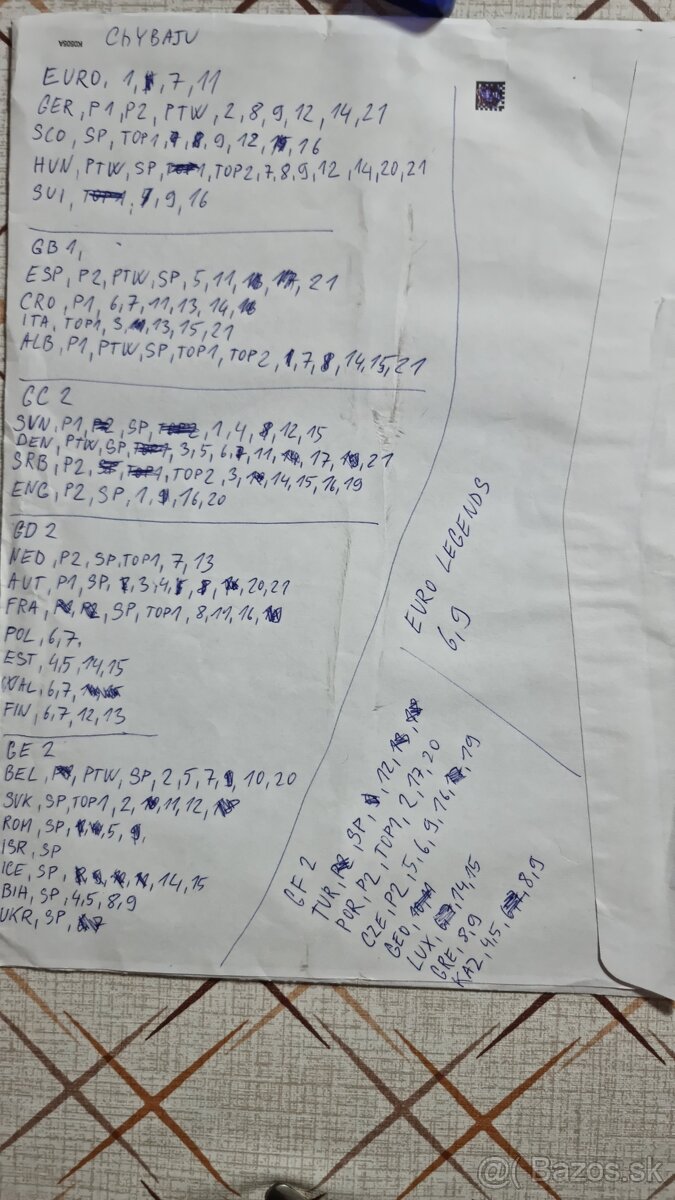 CHÝBAJÚ
EURO, 1, 7, 11
GER, P1, P2, PTW, 2, 8, 9, 12, 14, 21
SCO, SP, TOP1, 9, 12, 16
HUN, PTW, SP, TOP2, 7, 8, 9, 12, 14, 20, 21
SUI, 9, 16
GB 1,
ESP, P2, PTW, SP, 5, 11, 21
CRO, P1, 6, 7, 11, 13, 14,
ITA, TOP1, 3, 13, 15, 21
ALB, P1, PTW, SP, TOP1, TOP2, 7, 14, 15, 21
GC 2
SVN, P1, SP, 1, 4, 12, 15
DEN, PTW, SP, 3, 5, 6, 11, 17, 21
SRB, P2, TOP2, 3, 14, 15, 16, 19
ENG, P2, SP, 1, 16, 20
GD 2
NED, P2, SP, TOP1, 7, 13
AUT, P1, SP, 3, 4, 20, 21
FRA, SP, TOP1, 8, 11, 16,
POL, 6, 7,
EST, 4, 5, 14, 15
WAL, 6, 7,
FIN, 6, 7, 12, 13
GE 2
BEL, PTW, SP, 2, 5, 7, 10, 20
SVK, SP, TOP1, 2, 11, 12,
ROM, SP, 5,
ISR, SP
ICE, SP, 14, 15
BIH, SP, 4, 5, 8, 9
UKR, SP,
EURO LEGENDS
6, 9
GF 2
TUR, SP, 12,
POR, P2, TOP1, 2, 17, 20
CZE, P2, 5, 6, 9, 16, 19
GEO,
LUX, 14, 15
GRE, 8, 9
KAZ, 4, 5, 8, 9
K0505A
@( Bazos.sk